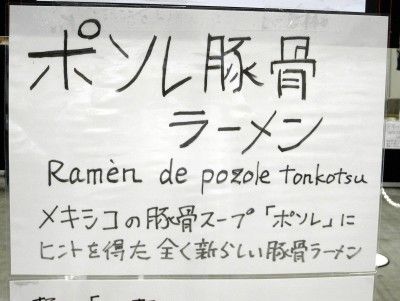 ポソレ豚骨
ラーメン
Ramèn de pozole tonkotsu
メキシコの豚骨スープ「ポソレ」に
ヒントを得た全く新らしい豚骨ラーメン